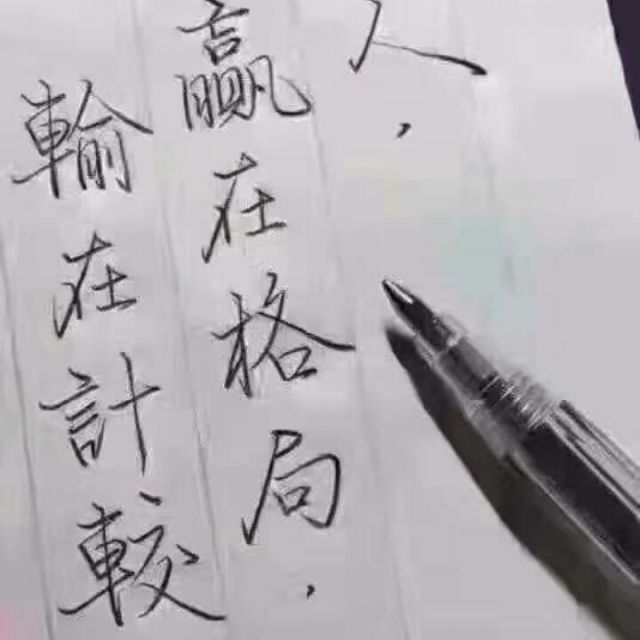 人，
贏在格局，
輸在計較